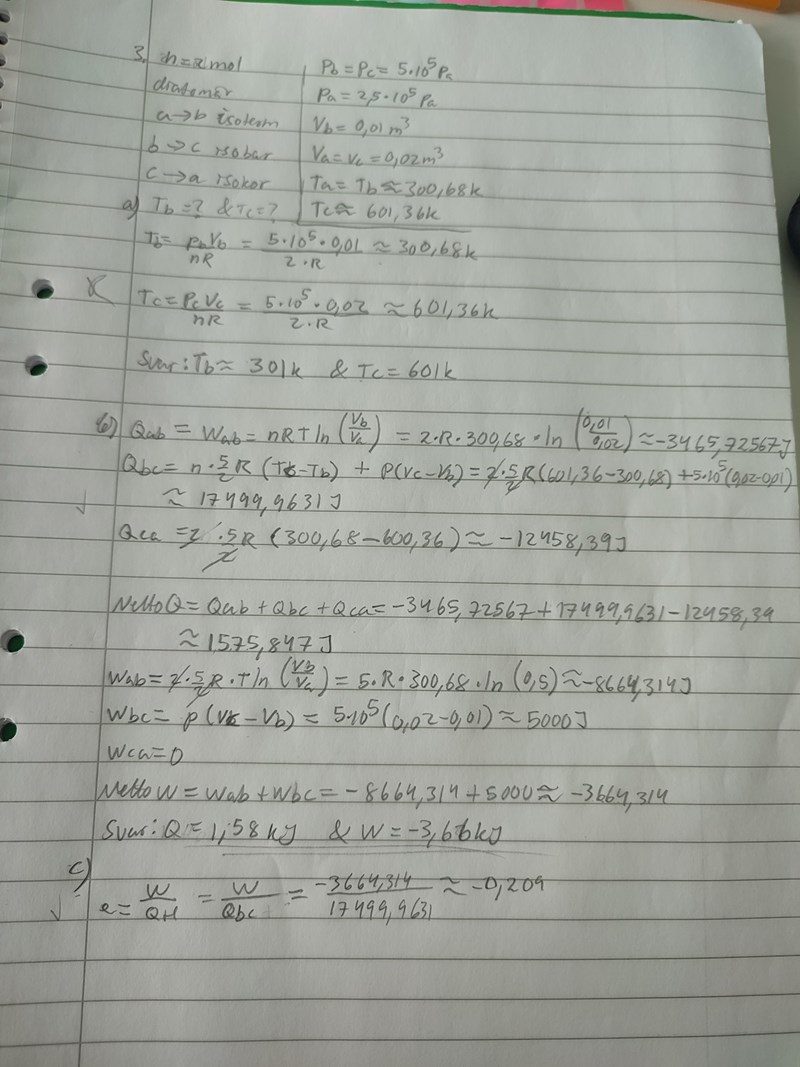 3. n=2mol
diatomär
a→b isoterm
b→c isobar
c→a isokor
a) Tb=? & Tc=?
Pb = Pc = 5·10⁵Pa
Pa = 2,5·10⁵Pa
Vb = 0,01m³
Va = Vc = 0,02m³
Ta = Tb ≈ 300,68k
Tc ≈ 601,36k
Tb = PbVb/nR = 5·10⁵·0,01/2·R ≈ 300,68k
Tc = PcVc/nR = 5·10⁵·0,02/2·R ≈ 601,36k
Svar: Tb ≈ 301k & Tc = 601k
b) Qab = Wab = nRT ln(Vb/Va) = 2·R·300,68·ln(0,01/0,02) ≈ -3465,72567J
Qbc = n·5/2R (Tc-Tb) + P(Vc-Vb) = 2·5/2R(601,36-300,68) + 5·10⁵(0,02-0,01)
≈ 17499,9631J
Qca = 2·5/2R (300,68-600,36) ≈ -12458,39J
Netto Q = Qab + Qbc + Qca = -3465,72567 + 17499,9631 - 12458,39
≈ 1575,847J
Wab = 2·5/2R·T ln(Vb/Va) = 5·R·300,68·ln(0,5) ≈ -8664,314J
Wbc = P(Vc-Vb) = 5·10⁵(0,02-0,01) ≈ 5000J
Wca = 0
Netto W = Wab + Wbc = -8664,314 + 5000 ≈ -3664,314
Svar: Q = 1,58kJ & W = -3,66kJ
c)
e = W/QH = W/Qbc = -3664,314/17499,9631 ≈ -0,209